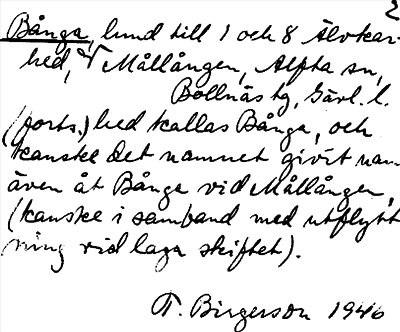 2
Bånga, hund till 1 och 8 Älvkar-
hed, v Mållången, Alfta sn,
Bollnäs tg, Gävl. l.
(forts.) hed kallas Bånga, och
kanske det namnet givit nam
även åt Bånga vid Mållången,
(kanske i samband med utflytt
ning vid laga skiftet).
T. Birgerson 1946